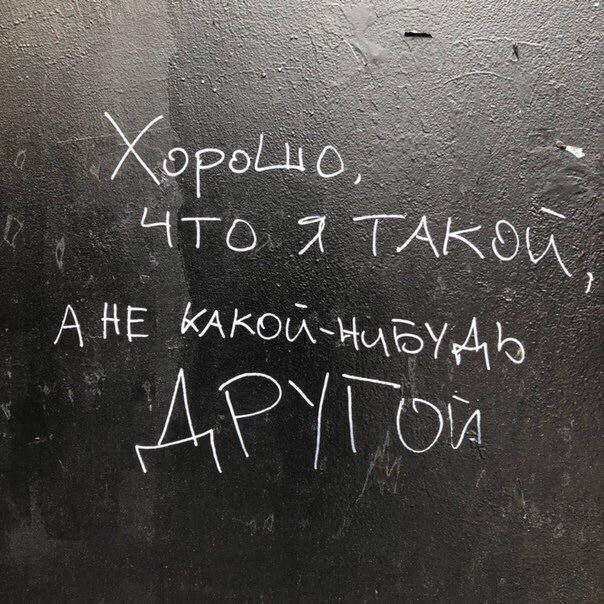 Хорошо,
что я такой,
а не какой-нибудь
ДРУГОЙ